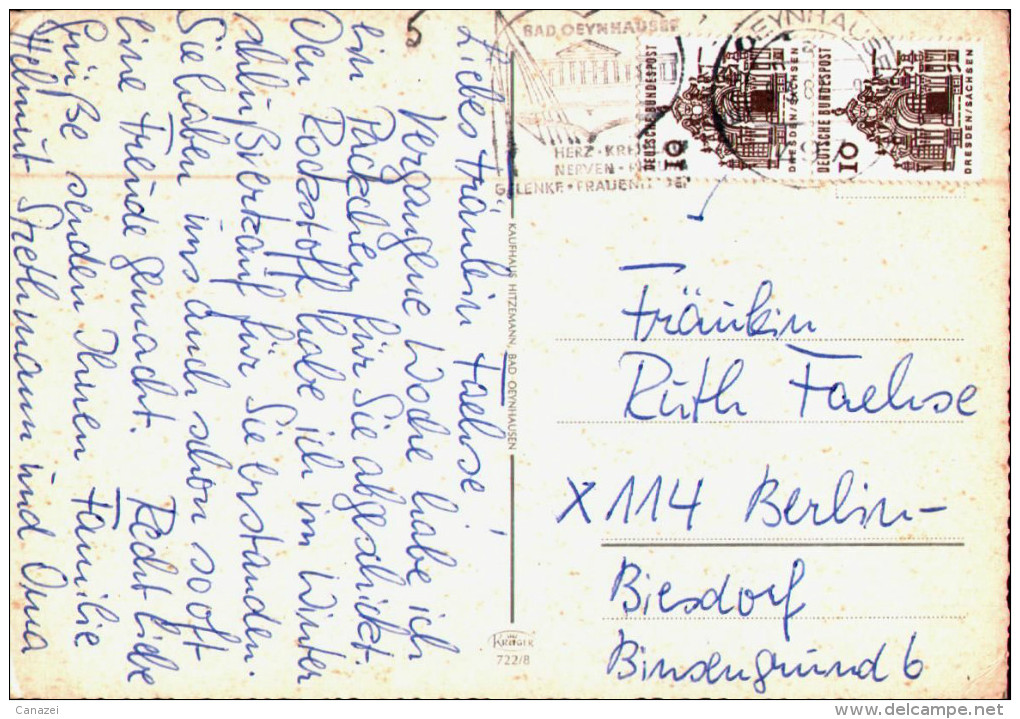 Liebes Fräulein Faehse!
Vergangene Woche habe ich
ein Päckchen für Sie abgeschickt.
Den Rockstoff habe ich im Winter
schlußverkauf für Sie erstanden.
Sie haben uns auch schon so oft
eine Freude gemacht. Recht liebe
Grüße senden Ihnen Familie
Helmut Stethmann und Oma
KAUFHAUS HITZEMANN, BAD OEYNHAUSEN
KRÜGER
722/8
BAD OEYNHAUSEN
HERZ · KRE
NERVEN ·
GELENKE · FRAUENL
OEYNHAUSEN
DEUTSCHE BUNDESPOST
10
DRESDEN/SACHSEN
DEUTSCHE BUNDESPOST
10
DRESDEN/SACHSEN
Fräulein
Ruth Faehse
X 114 Berlin-
Biesdorf
Binsengrund 6
Canazei
www.delcampe.net